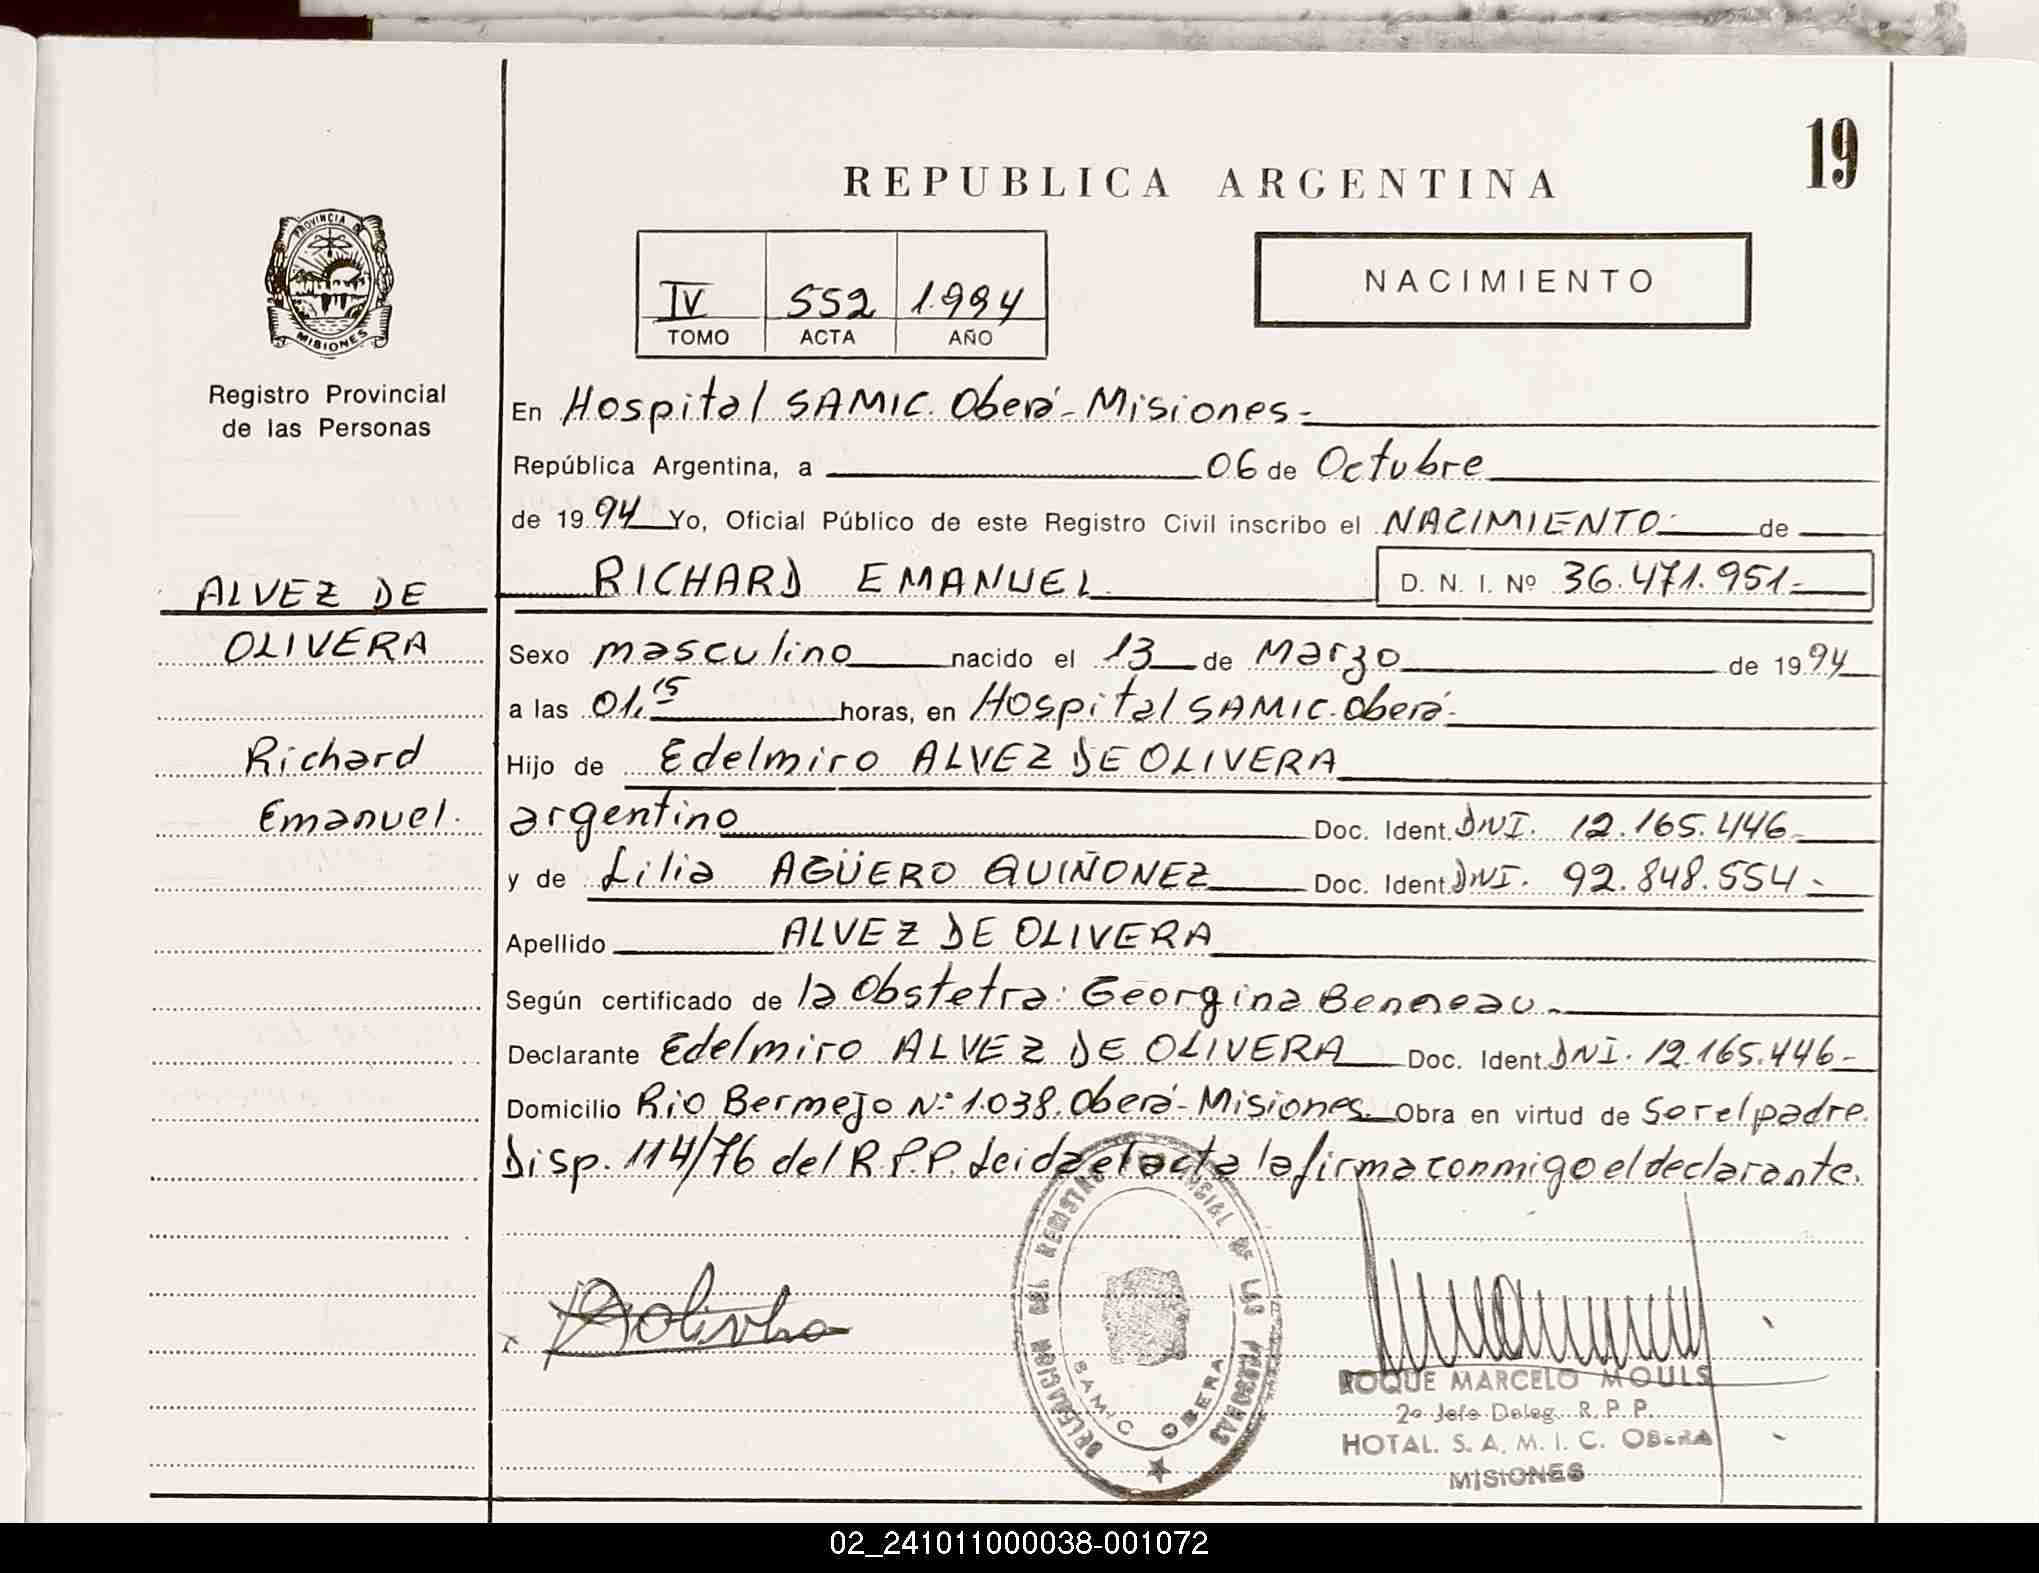 19
REPUBLICA ARGENTINA
PROVINCIA DE
MISIONES
Registro Provincial
de las Personas
IV 552 1.994
TOMO ACTA AÑO
NACIMIENTO
En Hospital SAMIC. Oberá - Misiones -
República Argentina, a 06 de Octubre
de 1994 Yo, Oficial Público de este Registro Civil inscribo el NACIMIENTO de
RICHARD EMANUEL D. N. I. Nº 36.471.951-
ALVEZ DE
OLIVERA
Richard
Emanuel.
Sexo masculino nacido el 13 de Marzo de 1994
a las 01,15 horas, en Hospital SAMIC. Oberá-
Hijo de Edelmiro ALVEZ DE OLIVERA
argentino Doc. Ident. DNI. 12.165.446-
y de Lilia AGÜERO QUIÑONEZ Doc. Ident. DNI. 92.848.554-
Apellido ALVEZ DE OLIVERA
Según certificado de la Obstetra: Georgina
Declarante Edelmiro ALVEZ DE OLIVERA Doc. Ident. DNI. 12.165.446-
Domicilio Rio Bermejo Nº 1.038. Oberá - Misiones. Obra en virtud de Ser el padre.
Disp. 114/76 del R.P.P. Leida el acta la firma conmigo el declarante.
DELEGACION DEL REGISTRO PROVINCIAL DE LAS PERSONAS
SAMIC OBERA
ROQUE MARCELO MOULS
2º Jefe Deleg. R. P. P.
HOTAL. S. A. M. I. C. OBERA
MISIONES
02_241011000038-001072